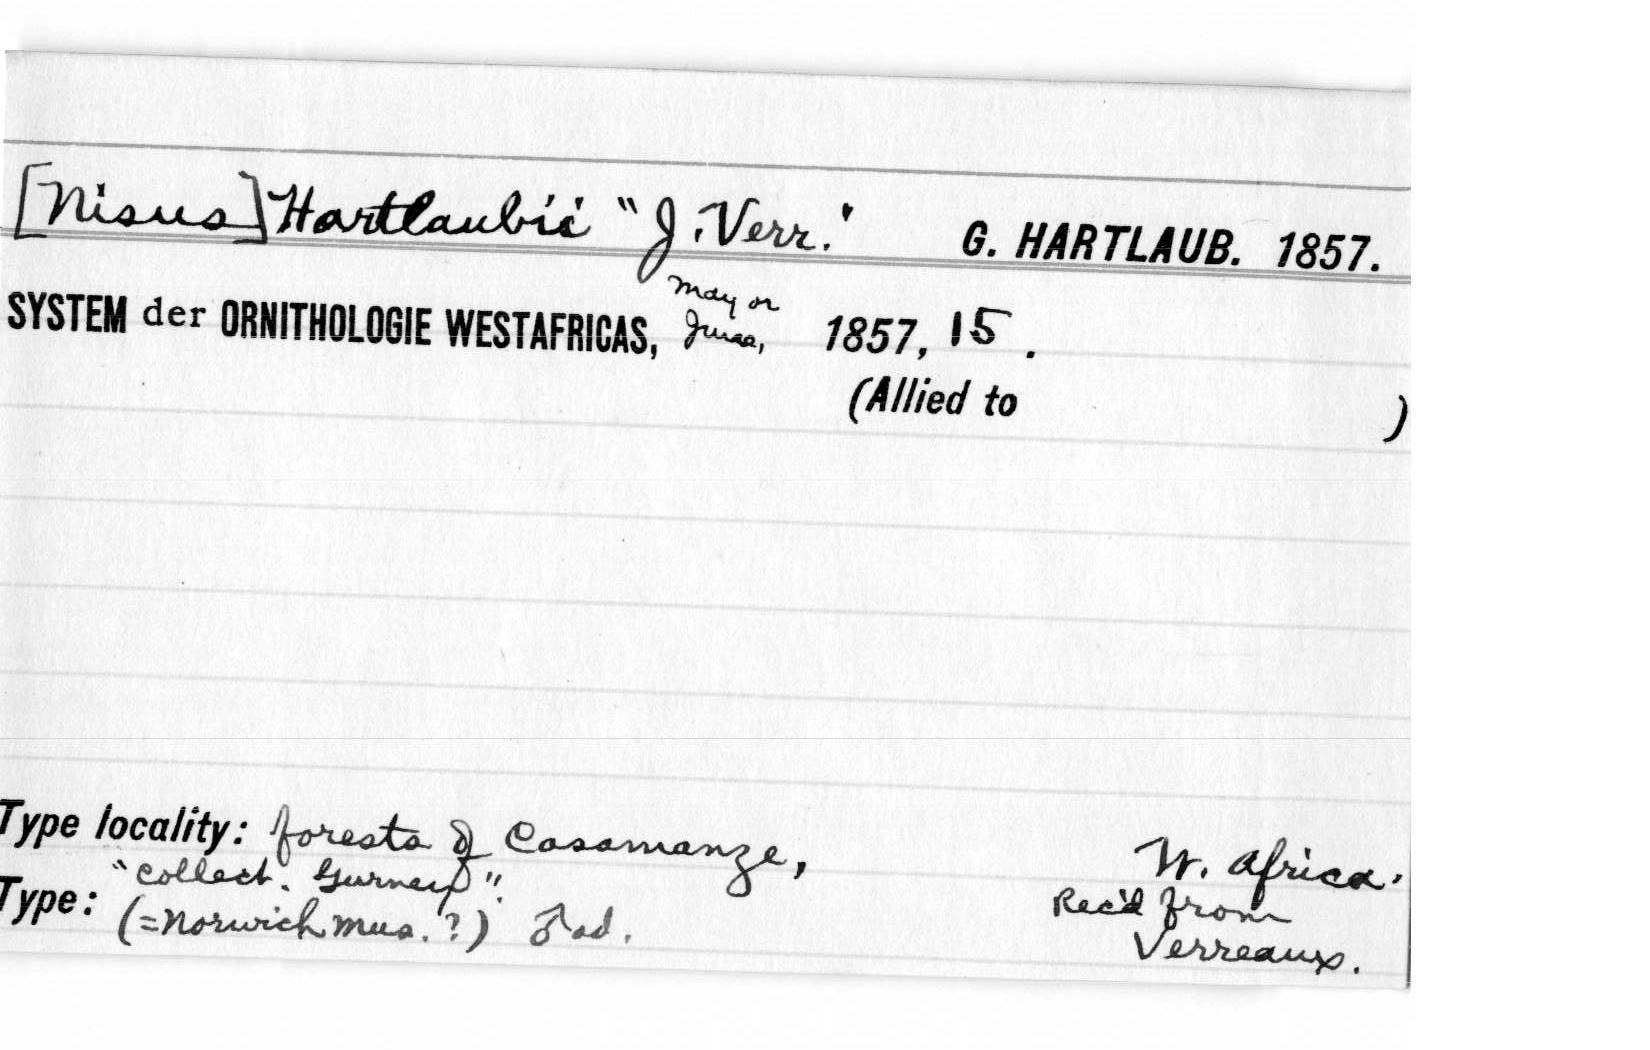 [Nisus] Hartlaubii "J. Verr." G. HARTLAUB. 1857.
SYSTEM der ORNITHOLOGIE WESTAFRICAS, May or June, 1857, 15.
(Allied to )
Type locality: forests of Casamanze, W. Africa.
"Collect. Gurney". Rec'd from
Type: (=Norwich Mus.?) ♂ ad. Verreaux.